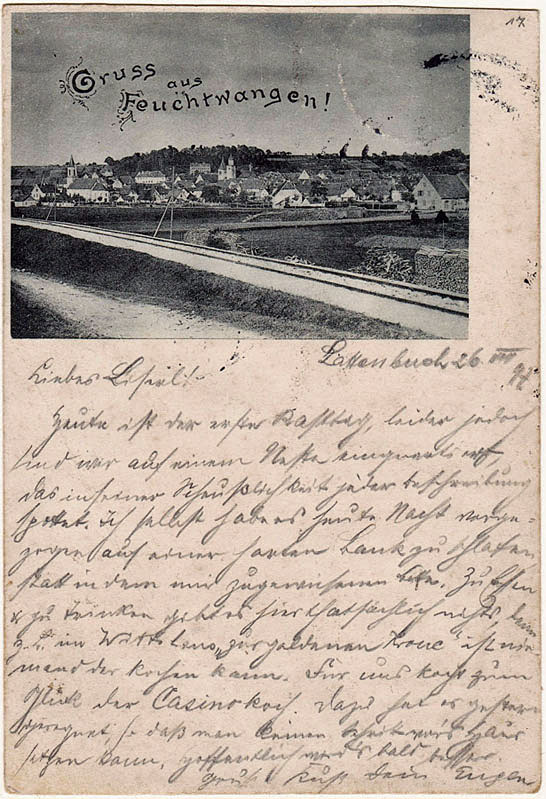 17
Gruss aus
Feuchtwangen!
26. VIII
97
Liebes Liserl!
Heute ist der erste Rasttag, leider jedoch
sind wir auf einem Neste einquartiert
das in seiner Scheußlichkeit jeder Beschreibung
spottet. Ich selbst habe es heute Nacht vorge-
zogen auf einer harten Bank zu schlafen
statt in dem mir zugewiesenen Bette. Zu Essen
& zu trinken gibt es hier thatsächlich nichts, denn
z.B. im Wirtshaus "zur goldenen Krone" ist nie-
mand der kochen kann. Für uns kocht zum
Glück der Casinokoch. Dazu hat es gestern
geregnet, so daß man keinen Schritt vor's Haus
setzen kann, hoffentlich wird's bald besser.
Gruß Kuß Dein Eugen